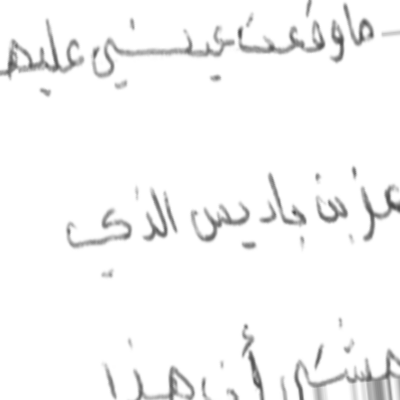 ما وقعت عيني عليه
عز بن باديس الذي
أن هذا